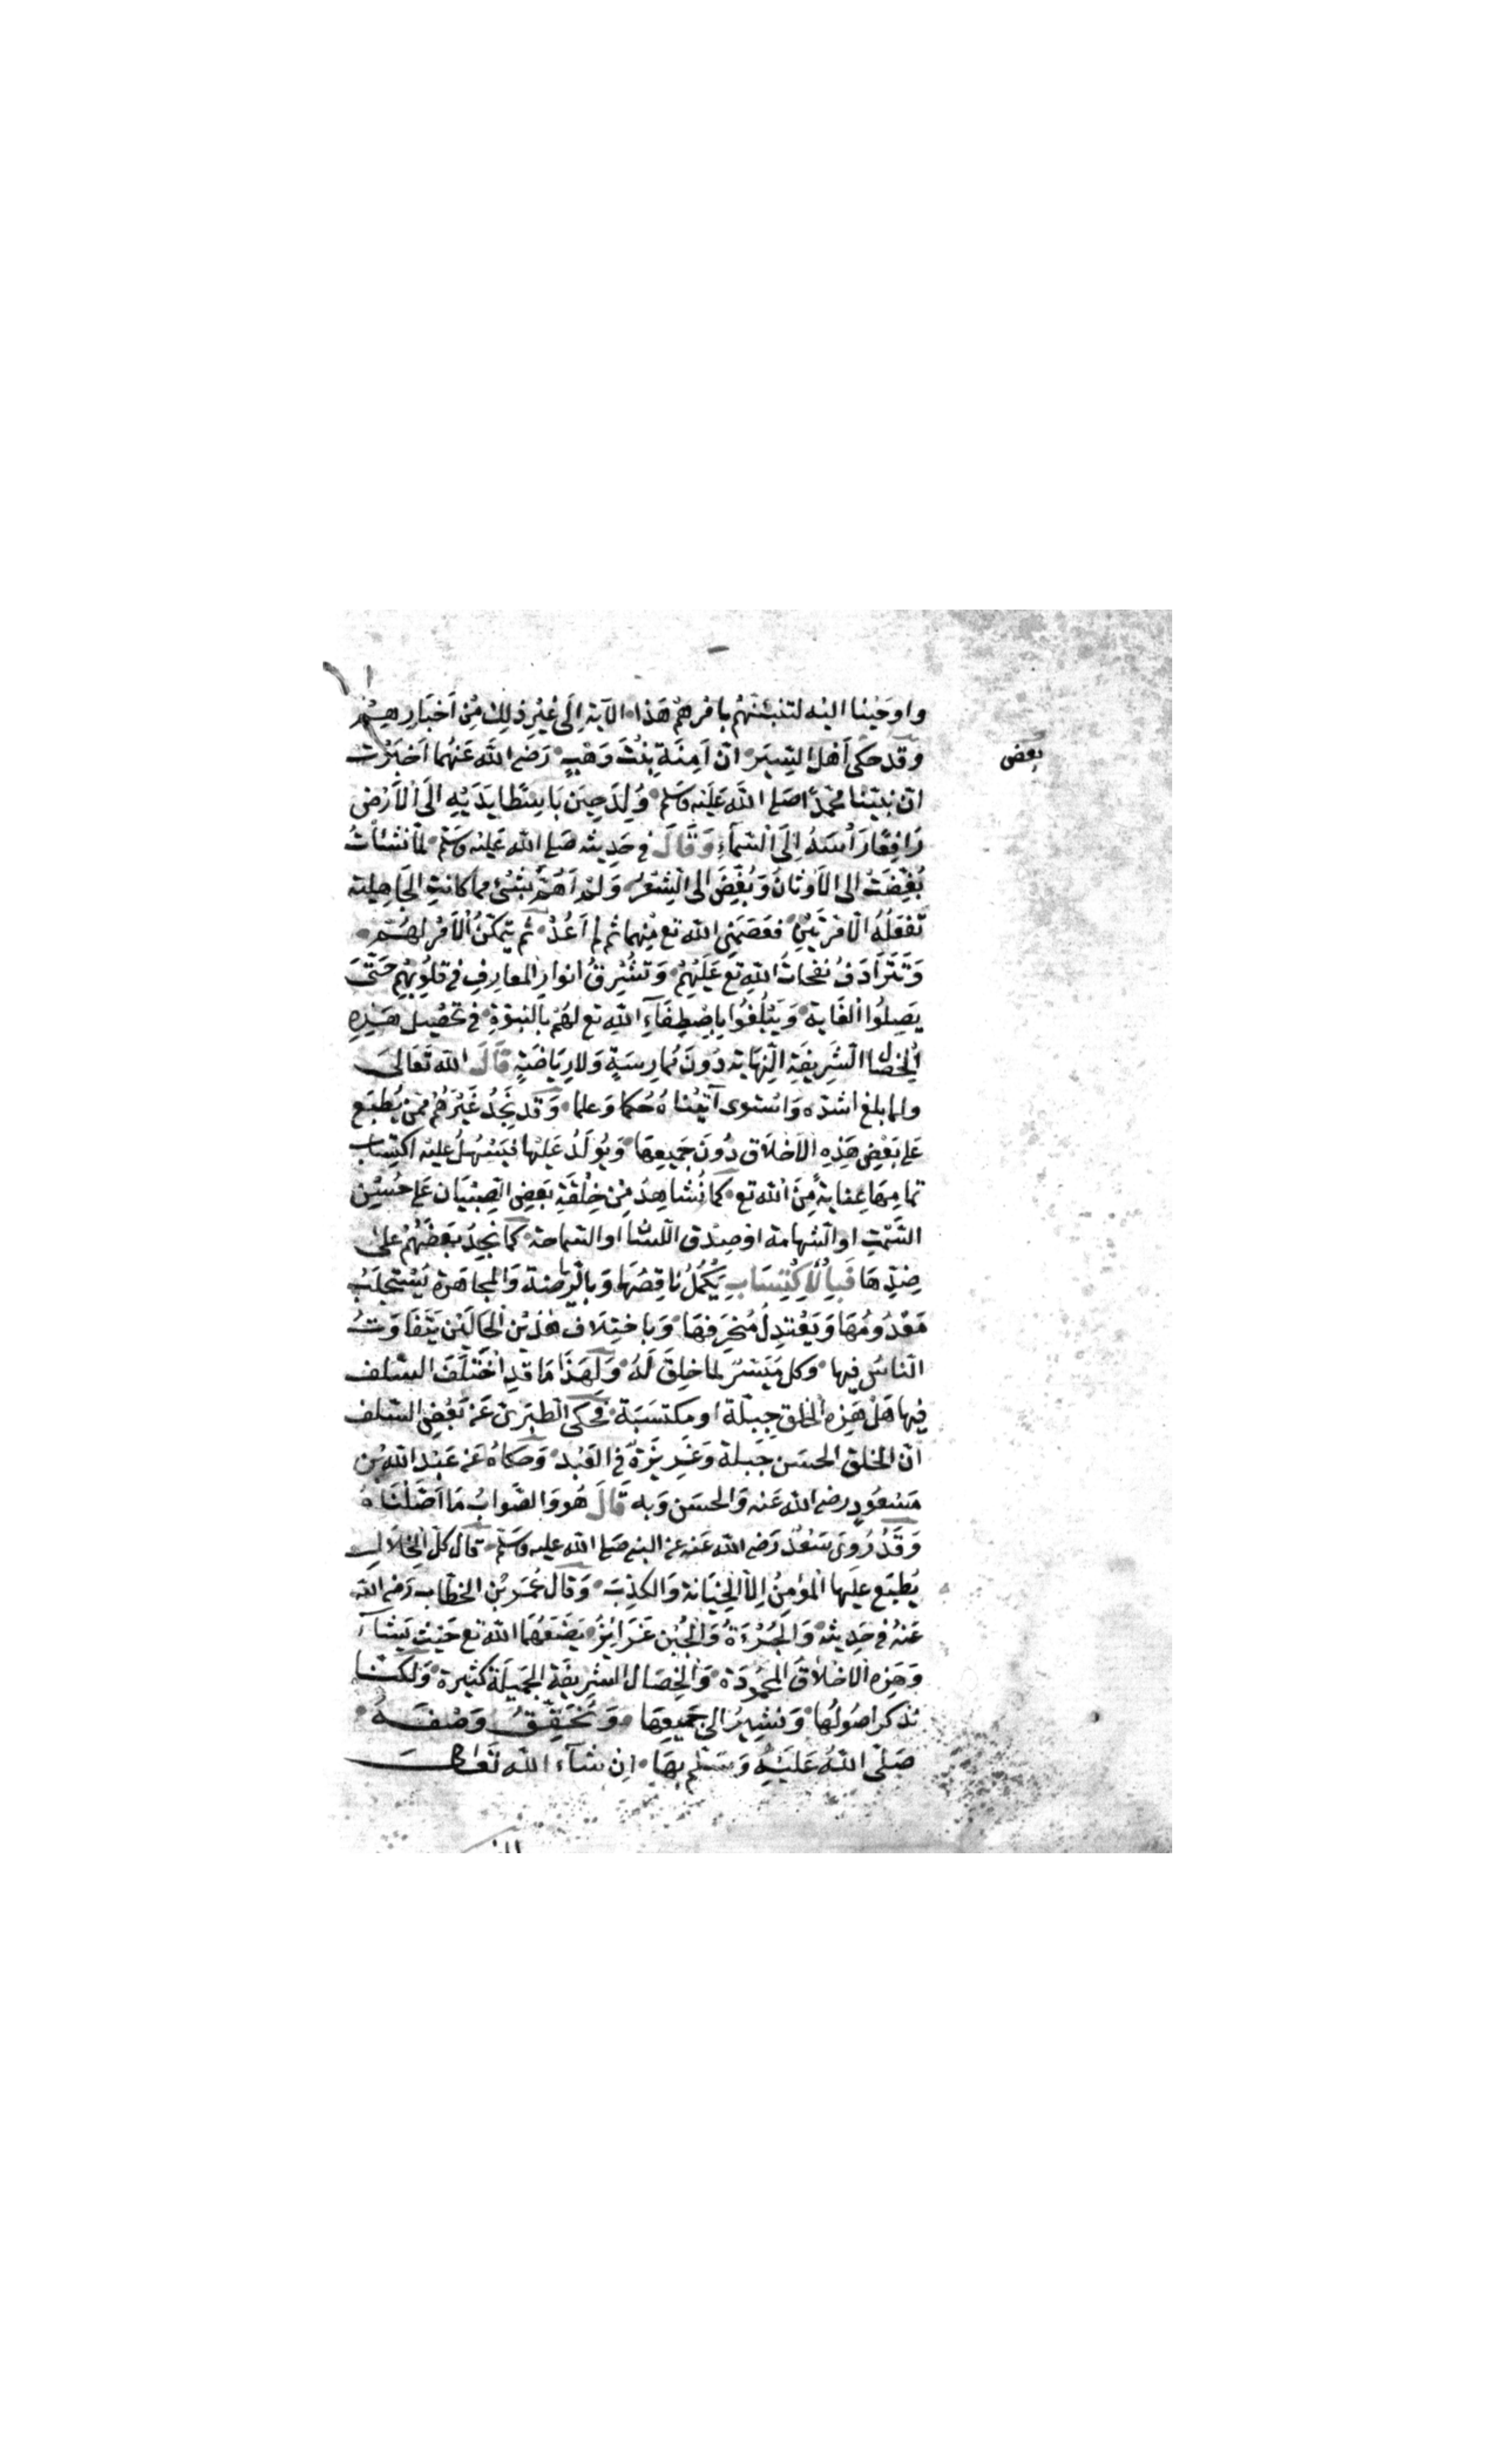 واوحينا اليه لتنبئنهم بامرهم هذا الآية إلى غير ذلك من اخبارهم
وقد حكى أهل السير ان آمنة بنت وهب رضى الله عنهما اخبرت
بعض
ان نبينا محمدًا صلى الله عليه وسلم وُلِدَ حين باسطا يديه الى الارض
رافعًا رأسه إلى السماء وقال في حديثه صلى الله عليه وسلم لما نشأت
بُغِّضَتْ الى الاوثان وبُغِّضَ الى الشعر ولم اهم بشئ مما كانت الجاهلية
تفعله الا مرتين فعصمنى الله تع منهما ثم لم اعد ثم يتمكن الامر لهم
وتترادف نفحات الله تع عليهم وتشرق انوار المعارف في قلوبهم حتى
يصلوا الغاية ويبلغوا باصطفاء الله تع لهم بالنبوة في تحصيل هذه
الخصال الشريفة النهاية دون ممارسة ولا رياضة قال الله تعالى
ولما بلغ اشده واستوى آتيناه حكما وعلما وقد نجد غيرهم ممن يطبع
على بعض هذه الاخلاق دون جميعها ويولد عليها فيسهل عليه اكتساب
تمامها عناية من الله تع كما نشاهد من خلقة بعض الصبيان على حسن
السمت او الشهامة او صدق اللسان او السماحة كما نجد بعضهم على
ضدها فبالاكتساب يكمل ناقصها وبالرياضة والمجاهدة يستجلب
معدومها ويعتدل منحرفها وباختلاف هذين الحالين يتفاوت
الناس فيها وكل ميسر لما خلق له ولهذا ما قد اختلف السلف
فيها هل هذه الخلق جبلة او مكتسبة فحكى الطبرى عن بعض السلف
ان الخلق الحسن جبلة وغريزة في العبد وحكاه عن عبد الله بن
مسعود رضى الله عنه والحسن وبه قال هو والصواب ما اصلناه
وقد روى سعد رضى الله عنه عن النبى صلى الله عليه وسلم قال كل الخلال
يطبع عليها المؤمن إلا الخيانة والكذب وقال عمر بن الخطاب رضى الله
عنه في حديثه والجرءة والجبن غرائز يضعهما الله تع حيث يشآء
وهذه الاخلاق المحمودة والخصال الشريفة الجميلة كثيرة ولكننا
نذكر اصولها ونشير الى جميعها ونحقق وصفه
صلى الله عليه وسلم بها ان شآء الله تعالى